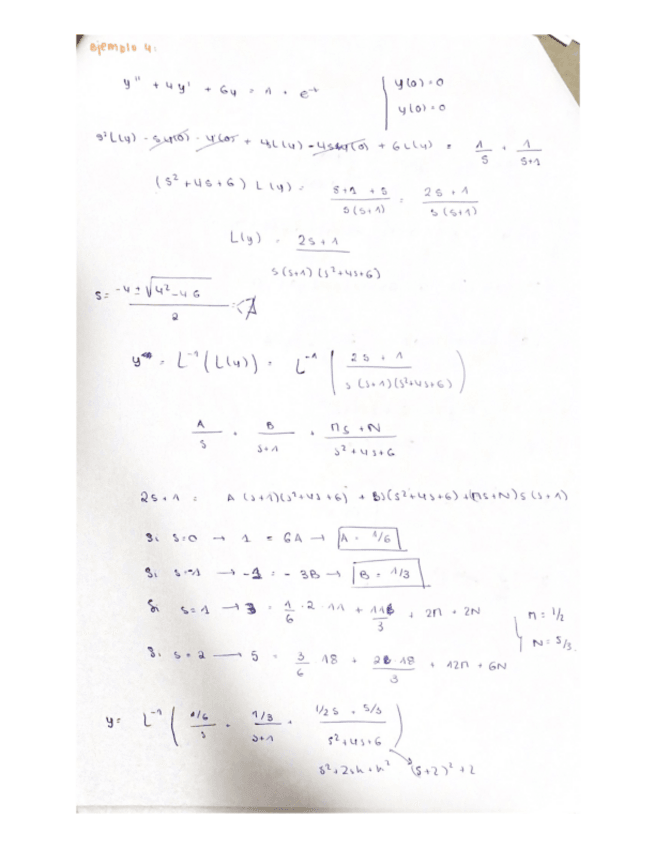 ejemplo 4:
y'' + 4y' + 6y = 1 + e^-t | y(0) = 0
y'(0) = 0
s²L(y) - sy(0) - y'(0) + 4L(y) - 4sy(0) + 6L(y) = 1/s + 1/(s+1)
(s² + 4s + 6) L(y) = (s+1 + s)/(s(s+1)) = (2s + 1)/(s(s+1))
L(y) = (2s + 1)/(s(s+1)(s²+4s+6))
s = (-4 ± √(4² - 4·6))/2 = ∄
y = L⁻¹(L(y)) = L⁻¹((2s + 1)/(s(s+1)(s²+4s+6)))
A/s + B/(s+1) + (Ms + N)/(s² + 4s + 6)
2s + 1 = A(s+1)(s²+4s+6) + Bs(s²+4s+6) + (Ms+N)s(s+1)
Si s=0 → 1 = 6A → A = 1/6
Si s=-1 → -1 = -3B → B = 1/3
Si s=1 → 3 = 1/6 · 2 · 11 + 11/3 + 2M + 2N | M = 1/2
N = 5/3
Si s=2 → 5 = 3/6 · 18 + 2·18/3 + 12M + 6N
y = L⁻¹((1/6)/s + (1/3)/(s+1) + (1/2 s + 5/3)/(s²+4s+6))
s² + 2sh + h² (s+2)² + 2